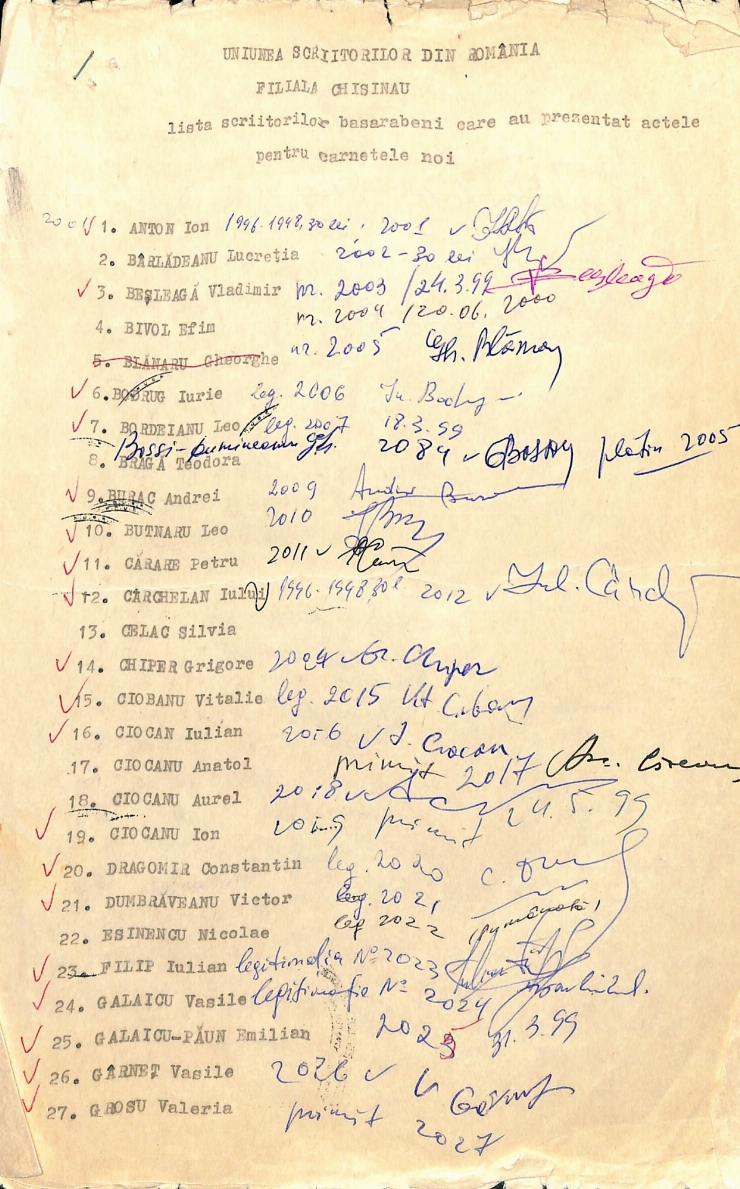 1
UNIUNEA SCRIITORILOR DIN ROMÂNIA
FILIALA CHISINAU
lista scriitorilor basarabeni care au prezentat actele
pentru carnetele noi
1. ANTON Ion 1996-1998, 30 lei, 2001 v
2. BÂRLĂDEANU Lucreția 2002 - 30 lei
3. BEȘLEAGĂ Vladimir nr. 2003 / 24.3.99 Beșleagă
4. BIVOL Efim nr. 2004 / 20.06. 2000
5. BLĂNARU Gheorghe nr. 2005 Gh. Blănaru
6. BODRUG Iurie leg. 2006
7. BORDEIANU Leo leg. 2007 18.3.99
Bossi-Dumineanu Gh. 2084 v plătin 2005
8. BRAGĂ Teodora
9. BURAC Andrei 2009 Andrei Burac
10. BUTNARU Leo 2010
11. CĂRARE Petru 2011 v
12. CÂRCHELAN Iului 1996-1998, 30 l 2012 v Iul. Cârch
13. CELAC Silvia
14. CHIPER Grigore v Gr. Chiper
15. CIOBANU Vitalie leg. 2015 Vit. Ciobanu
16. CIOCAN Iulian 2016 v I. Ciocan
17. CIOCANU Anatol primit 2017
18. CIOCANU Aurel 2018 v
19. CIOCANU Ion 2019 primit 24.5.99
20. DRAGOMIR Constantin leg. 2020
21. DUMBRĂVEANU Victor leg. 2021
22. ESINENCU Nicolae leg 2022
23. FILIP Iulian legitimația № 2023
24. GALAICU Vasile legitimație № 2024
25. GALAICU-PĂUN Emilian 2025 31.3.99
26. GÂRNEȚ Vasile 2026 v
27. GROSU Valeria primit 2027